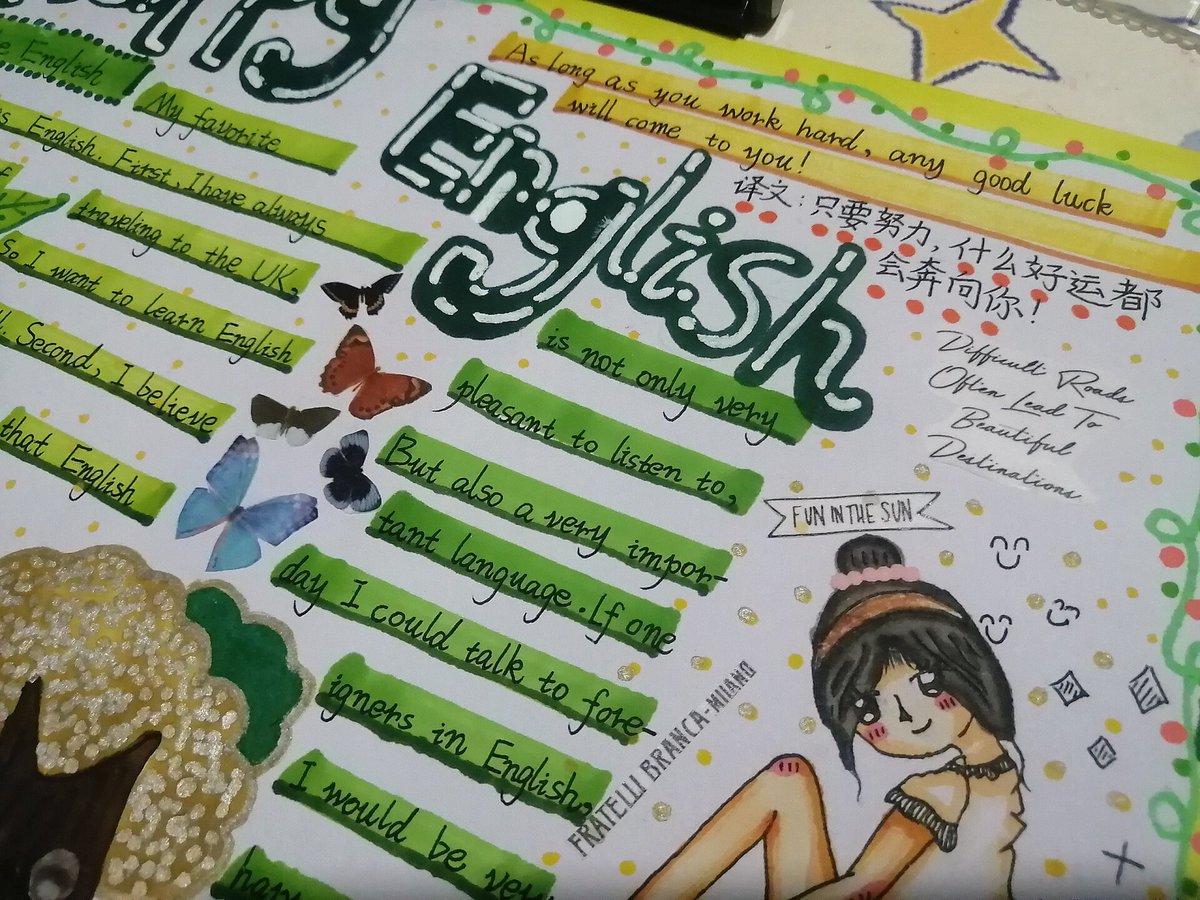 English
English
My favorite
English. First, I have always
traveling to the UK.
So I want to learn English
Second, I believe
that English
is not only very
pleasant to listen to,
But also a very impor-
tant language. If one
day I could talk to fore-
igners in English,
I would be
As long as you work hard, any good luck
will come to you!
译文:只要努力,什么好运都
会奔向你!
Difficult Roads
Often Lead To
Beautiful
Destinations
FUN IN THE SUN
FRATELLI BRANCA-MILANO